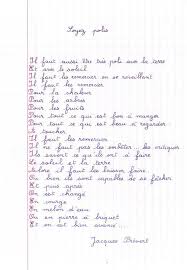 Soyez polis
Il faut aussi être très poli avec la terre
Et avec le soleil
Il faut les remercier en se réveillant
Il faut les remercier
Pour la chaleur
Pour les arbres
Pour les fruits
Pour tout ce qui est bon à manger
Pour tout ce qui est beau à regarder
À toucher
Il faut les remercier
Il ne faut pas les embêter... les critiquer
Ils savent ce qu'ils ont à faire
Le soleil et la terre
Alors il faut les laisser faire
Ou bien ils sont capables de se fâcher
Et puis après
On est changé
En courge
En melon d'eau
Ou en pierre à briquet
Et on est bien avancé...
Jacques Prévert